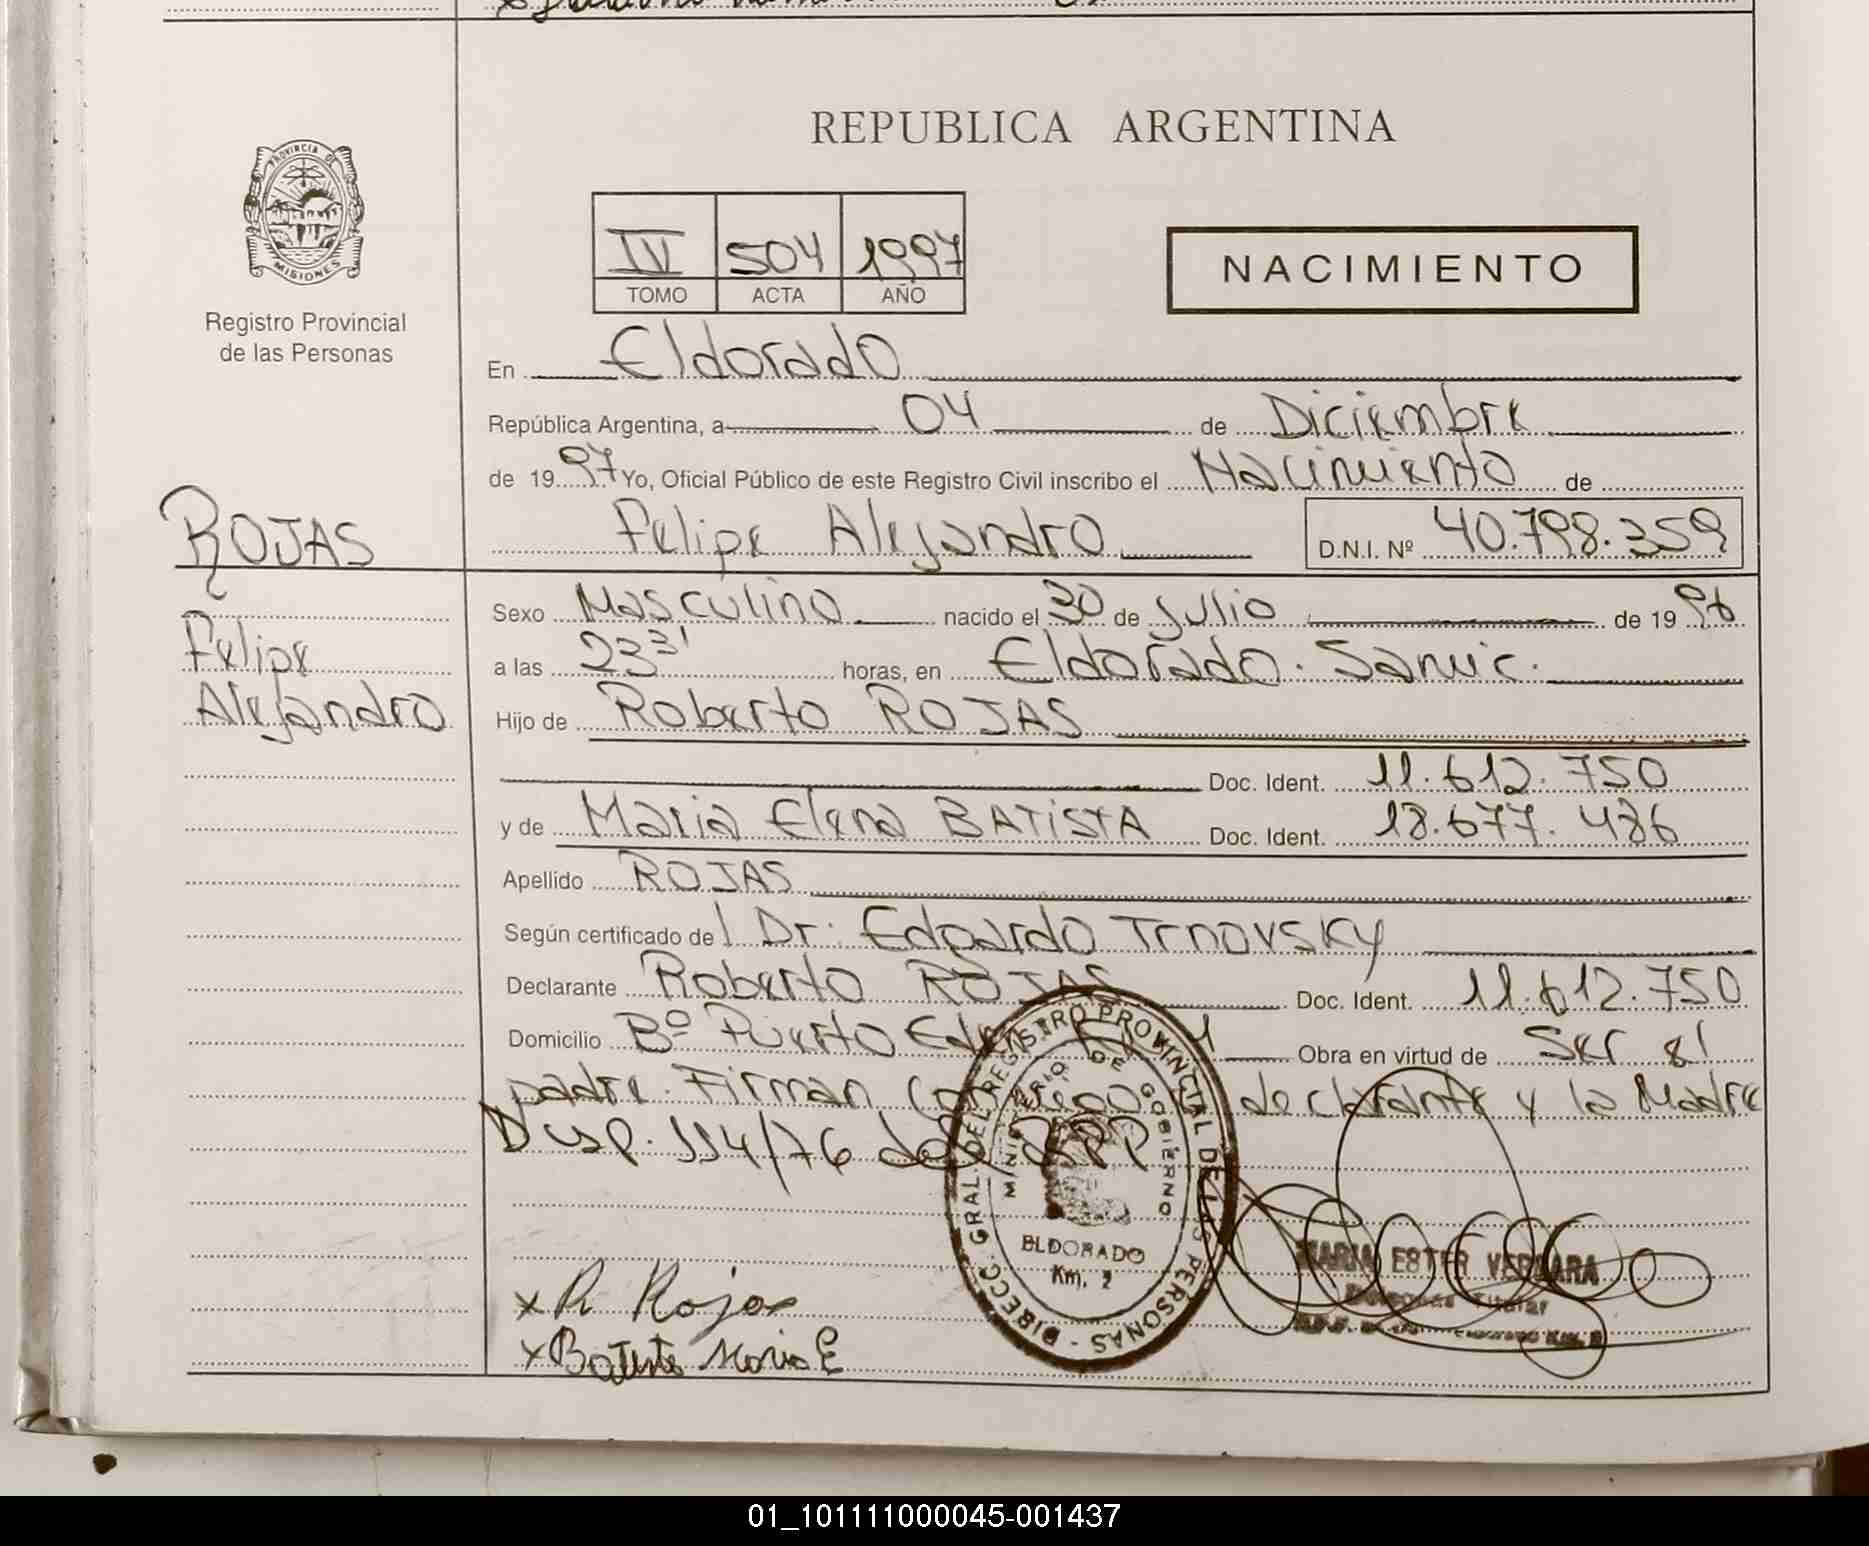 PROVINCIA DE
MISIONES
Registro Provincial
de las Personas
REPUBLICA ARGENTINA
IV 504 1997
TOMO ACTA AÑO
NACIMIENTO
En Eldorado
República Argentina, a 04 de Diciembre
de 1997 Yo, Oficial Público de este Registro Civil inscribo el Nacimiento de
ROJAS
Felipe Alejandro D.N.I. Nº 40.798.359
Felipe
Alejandro
Sexo Masculino nacido el 30 de Julio de 1996
a las 23 33' horas, en Eldorado. Samic.
Hijo de Roberto ROJAS
Doc. Ident. 11.612.750
y de Maria Elena BATISTA Doc. Ident. 18.677.486
Apellido ROJAS
Según certificado del Dr. Edgardo Trnovsky
Declarante Roberto ROJAS Doc. Ident. 11.612.750
Domicilio Bº Puerto Obra en virtud de Ser el
padre. Firman declarante y la Madre
Disp. 114/76 del RPP
DIRECC. GRAL. DEL REGISTRO PROVINCIAL DE LAS PERSONAS -
MINISTERIO DE GOBIERNO
ELDORADO
Km. 2
MARIA ESTER VERGARA
Delegada Titular
x R Rojas
x Batista Maria E
01_101111000045-001437